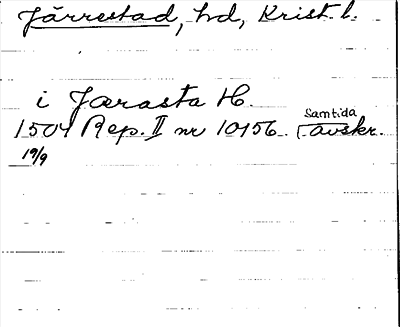 Järrestad, hd, Krist. l.
i Jærasta H
1504 Rep. II nr 10156. Samtida avskr.
19/9